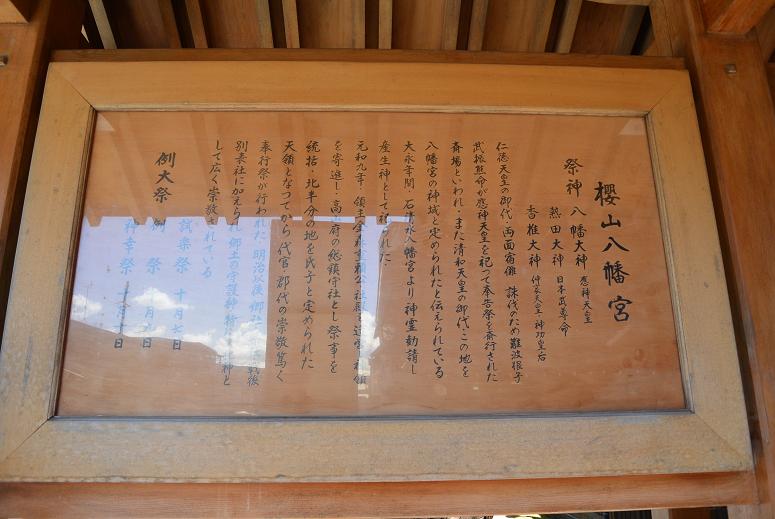 櫻山八幡宮
祭神 八幡大神 應神天皇
熱田大神 日本武尊命
香椎大神 仲哀天皇・神功皇后
仁徳天皇の御代・両面宿儺 誅伐のため難波根子
武振熊命が應神天皇を祀つて奉告祭を斎行された
斎場といわれ・また清和天皇の御代・この地を
八幡宮の神域と定められたと伝えられている
大永年間・石清水八幡宮より神霊勧請し
産生神として祀られた・
元和九年・領主金森重頼公社殿を造営し神領
を寄進し・高山府の総鎮守社とし祭事を
統括・北半分の地を氏子と定められた
天領となつてから代官・郡代の崇敬篤く
奉行祭が行われた 明治以後 郷社 戦後
別表社に加えられ郷土の守護神 神と
して広く崇敬されている
例大祭 試楽祭 十月七日
例祭 十月九日
神幸祭 十月十日